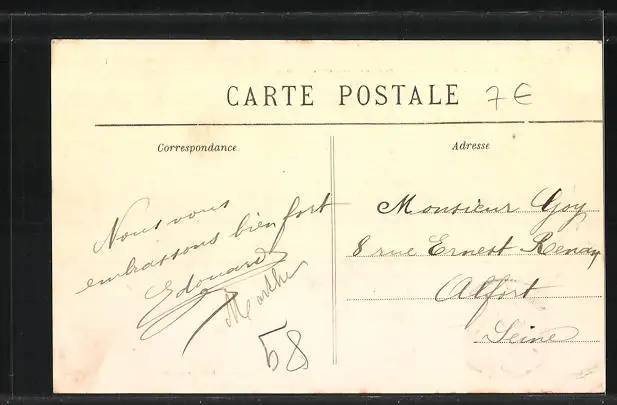 CARTE POSTALE 7€
Correspondance
Adresse
Nous vous
embrassons bien fort
Edouard
Marthe
58
Monsieur Goy
8 rue Ernest Renan
Alfort
Seine